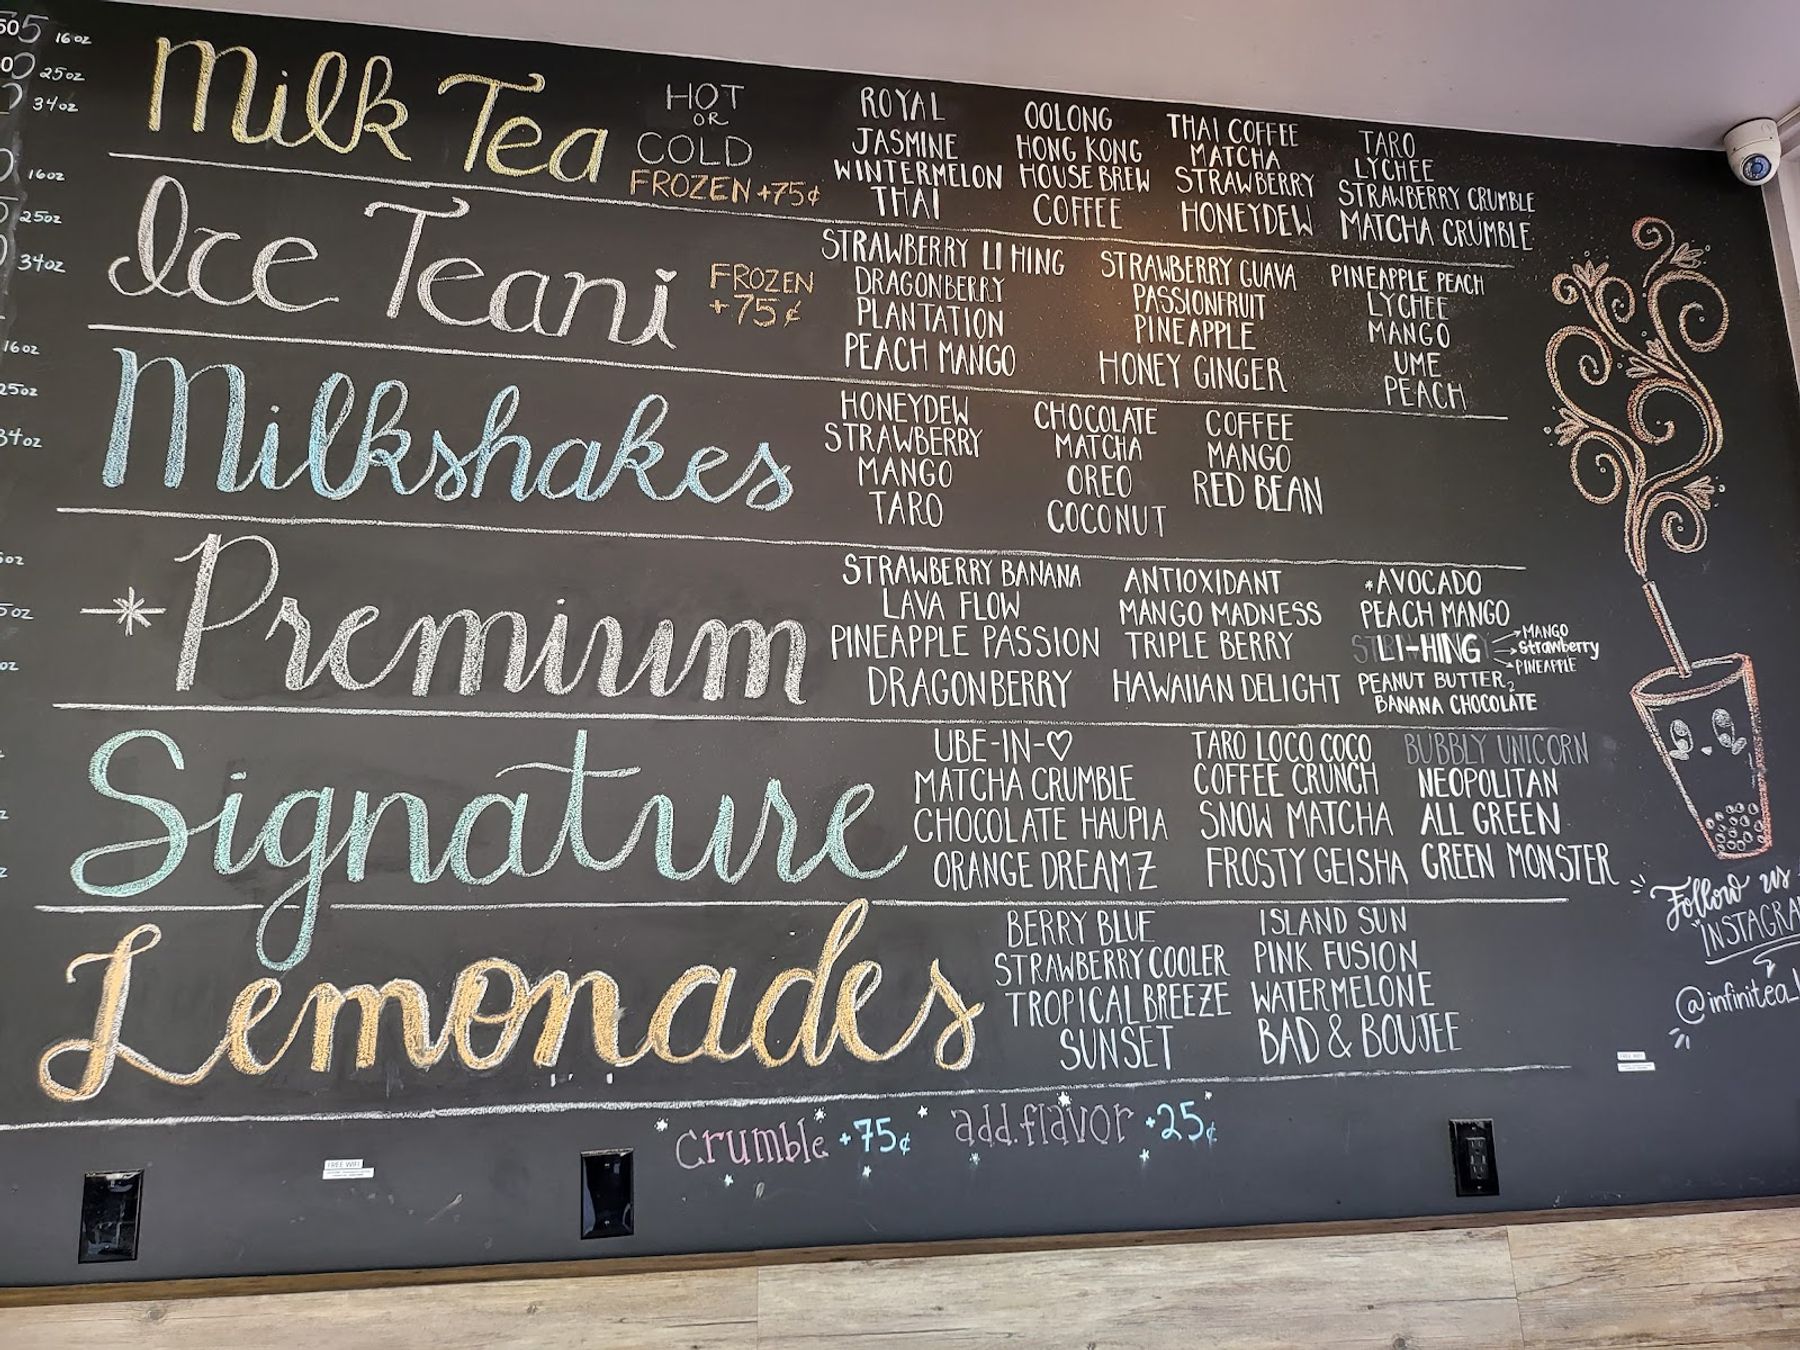 16oz
25oz
34oz
Milk Tea
HOT
OR
COLD
FROZEN +75¢
ROYAL
JASMINE
WINTERMELON
THAI
OOLONG
HONG KONG
HOUSE BREW
COFFEE
THAI COFFEE
MATCHA
STRAWBERRY
HONEYDEW
TARO
LYCHEE
STRAWBERRY CRUMBLE
MATCHA CRUMBLE
16oz
25oz
34oz
Ice Teani
FROZEN
+75¢
STRAWBERRY LI HING
DRAGONBERRY
PLANTATION
PEACH MANGO
STRAWBERRY GUAVA
PASSIONFRUIT
PINEAPPLE
HONEY GINGER
PINEAPPLE PEACH
LYCHEE
MANGO
UME
PEACH
16oz
25oz
34oz
Milkshakes
HONEYDEW
STRAWBERRY
MANGO
TARO
CHOCOLATE
MATCHA
OREO
COCONUT
COFFEE
MANGO
RED BEAN
*Premium
STRAWBERRY BANANA
LAVA FLOW
PINEAPPLE PASSION
DRAGONBERRY
ANTIOXIDANT
MANGO MADNESS
TRIPLE BERRY
HAWAIIAN DELIGHT
*AVOCADO
PEACH MANGO
LI-HING
MANGO
Strawberry
PINEAPPLE
PEANUT BUTTER
BANANA CHOCOLATE
Signature
UBE-IN-♡
MATCHA CRUMBLE
CHOCOLATE HAUPIA
ORANGE DREAMZ
TARO LOCO COCO
COFFEE CRUNCH
SNOW MATCHA
FROSTY GEISHA
BUBBLY UNICORN
NEOPOLITAN
ALL GREEN
GREEN MONSTER
Lemonades
BERRY BLUE
STRAWBERRY COOLER
TROPICAL BREEZE
SUNSET
ISLAND SUN
PINK FUSION
WATERMELONE
BAD & BOUJEE
Follow us
INSTAGRA
@infinitea_
crumble +75¢ add.flavor +25¢
FREE WIFI
FREE WIFI